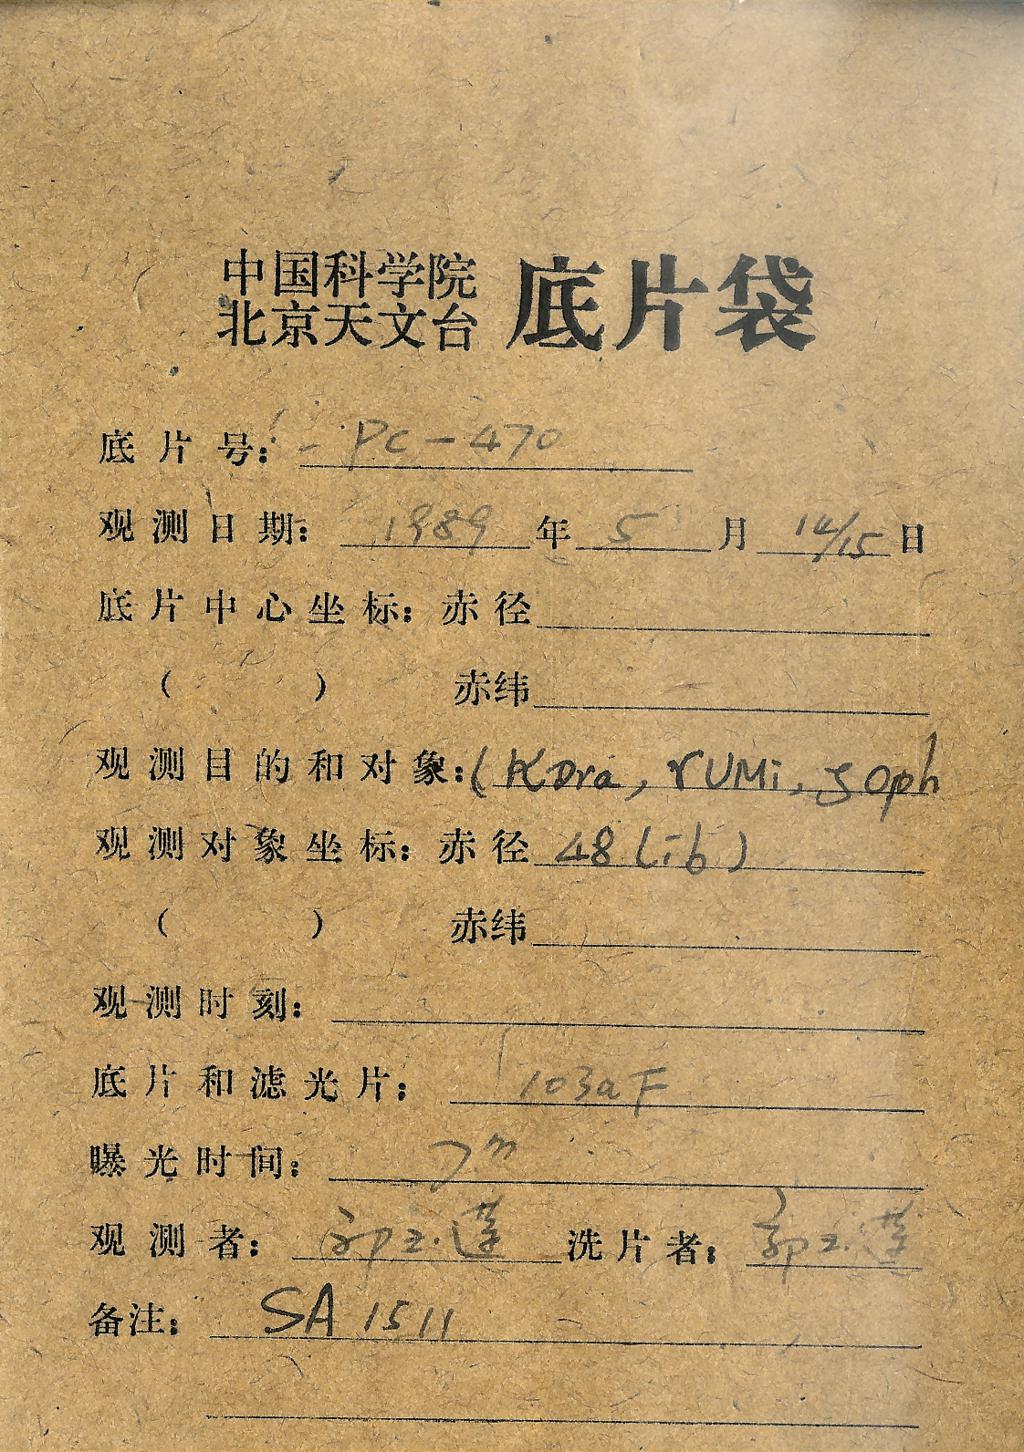 中国科学院
北京天文台 底片袋
底片号: PC-470
观测日期: 1989年 5 月 14/15 日
底片中心坐标: 赤径
( ) 赤纬
观测目的和对象: (κDra, γUMi, ζOph
观测对象坐标: 赤径 48(ib)
( ) 赤纬
观测时刻:
底片和滤光片: 103aF
曝光时间: 7m
观测者: 郭玉莲 洗片者: 郭玉莲
备注: SA 1511